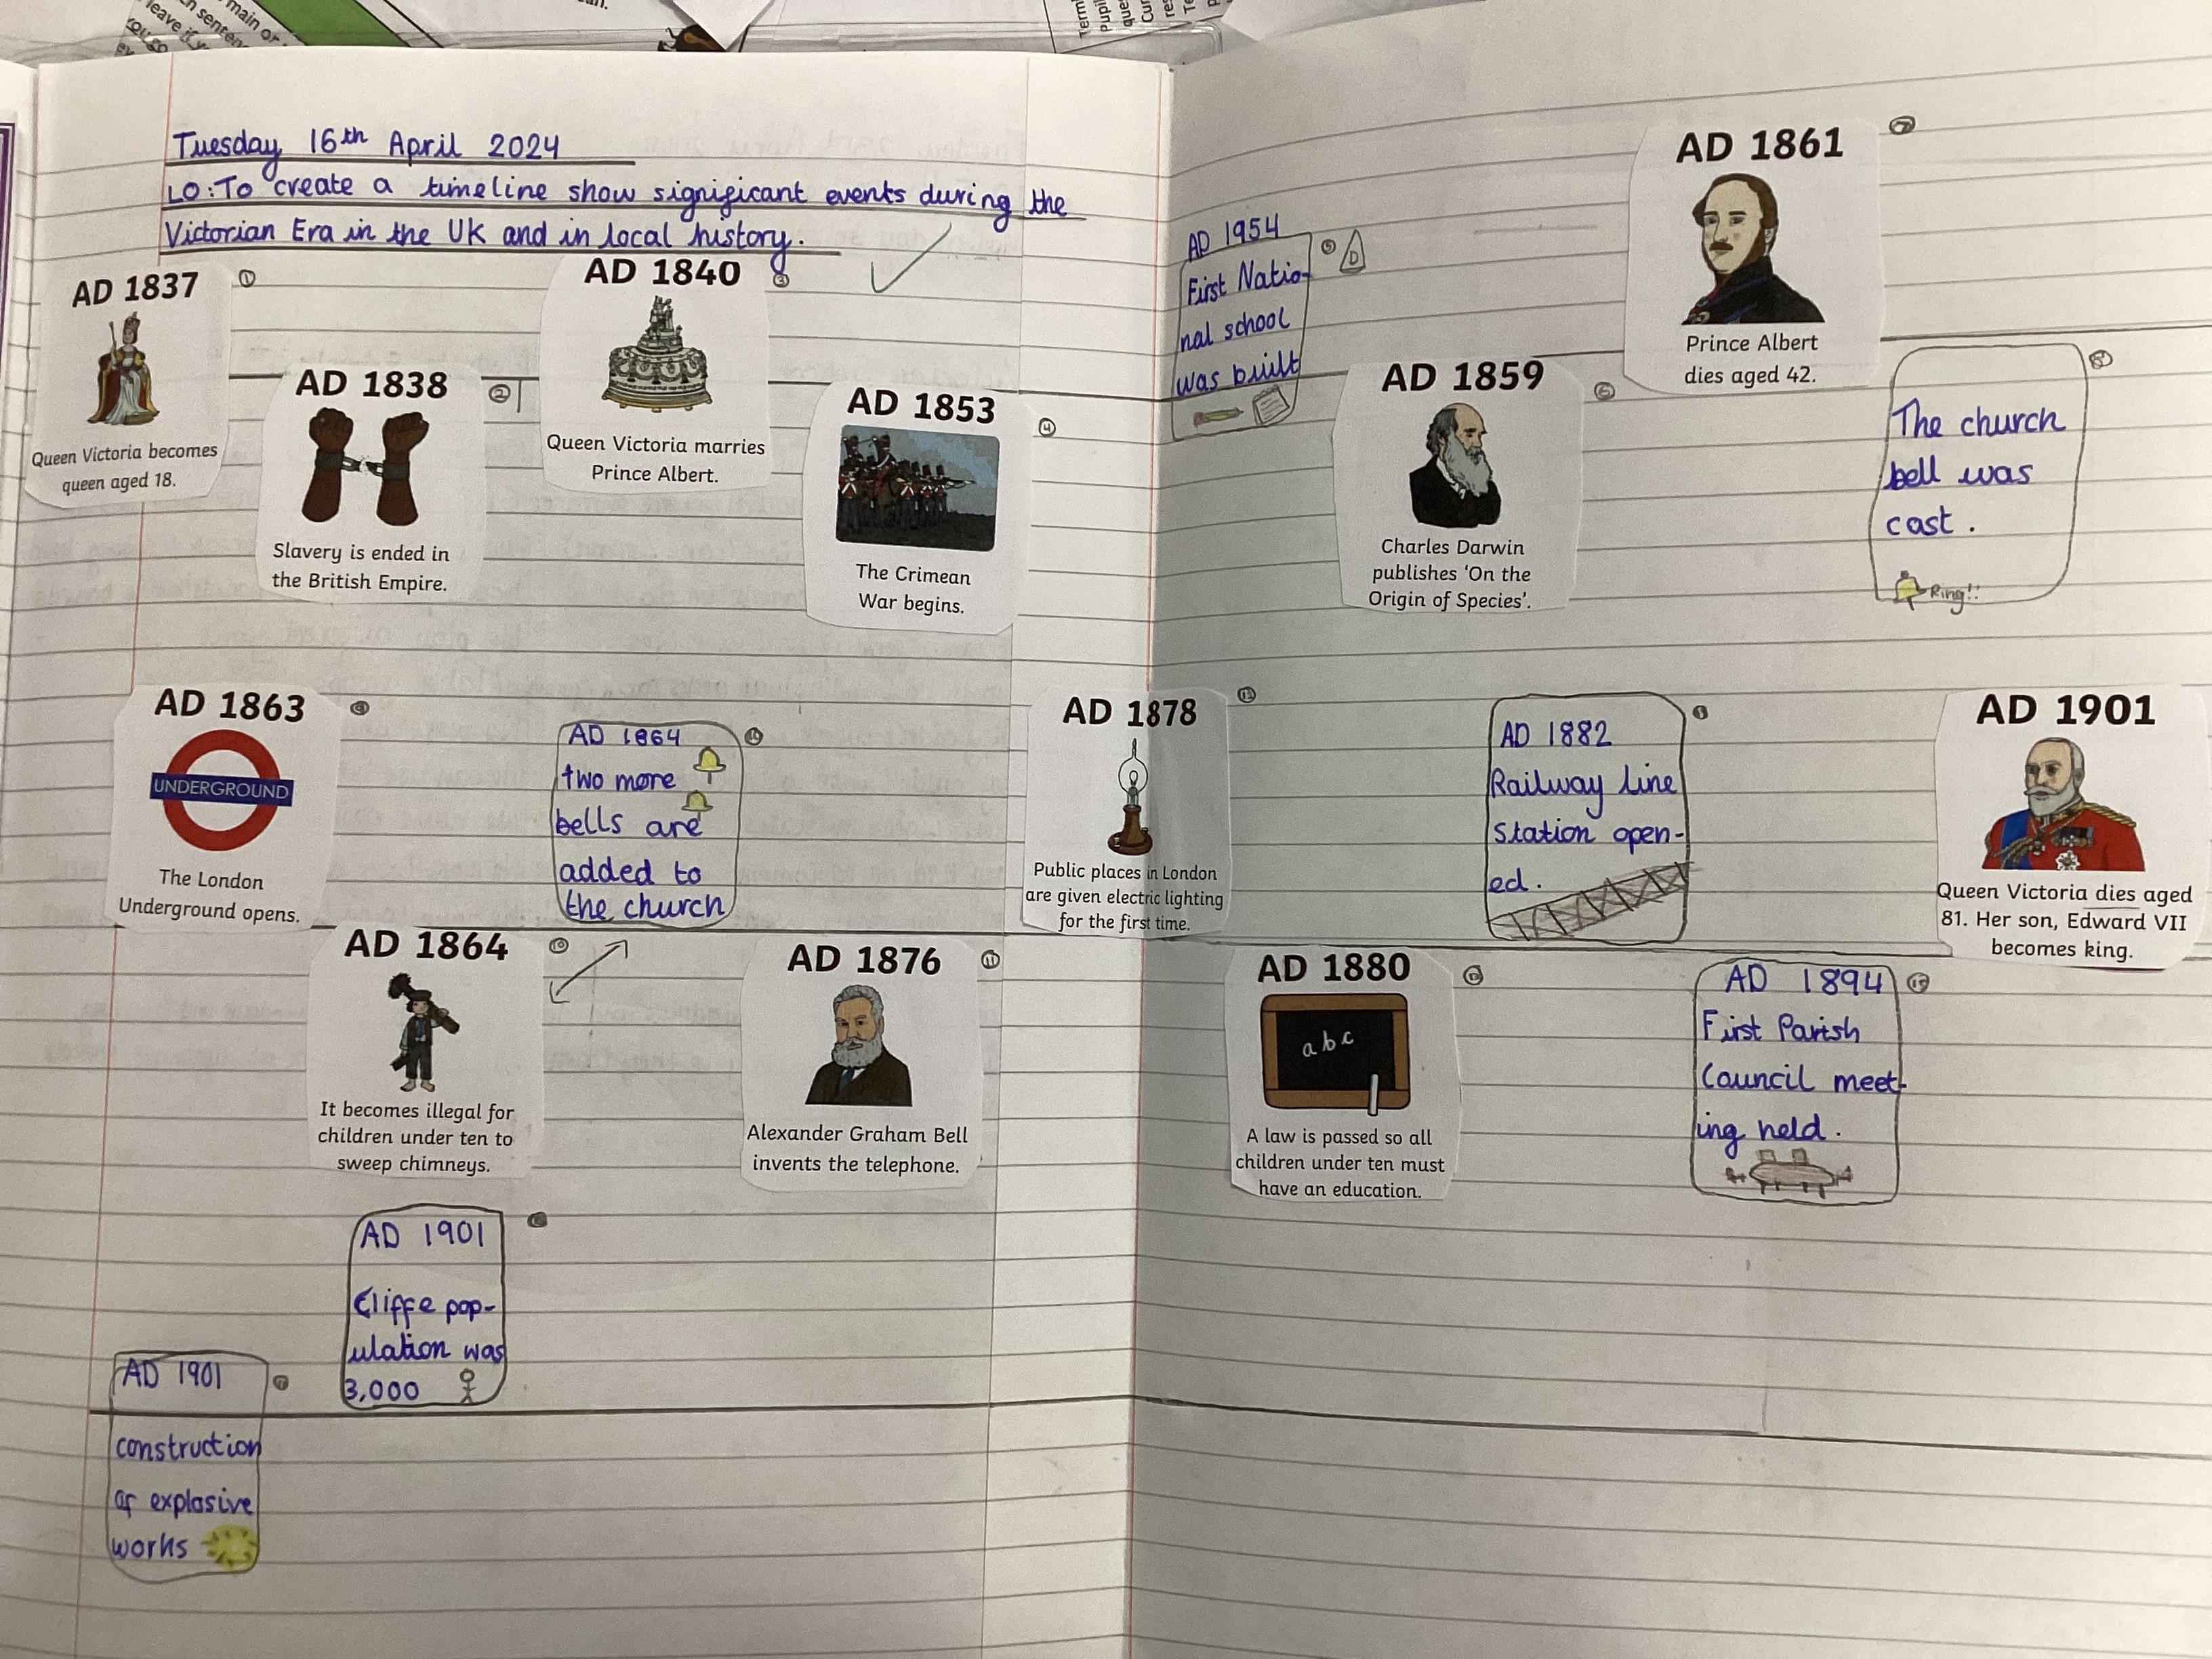 Tuesday 16th April 2024
LO: To create a timeline show significant events during the
Victorian Era in the UK and in local history.
AD 1837
1
Queen Victoria becomes
queen aged 18.
AD 1838
2
Slavery is ended in
the British Empire.
AD 1840
3
Queen Victoria marries
Prince Albert.
AD 1853
4
The Crimean
War begins.
AD 1954
5
D
First Natio-
nal school
was built
AD 1859
6
Charles Darwin
publishes 'On the
Origin of Species'.
AD 1861
7
Prince Albert
dies aged 42.
8
The church
bell was
cast.
Ring!!
AD 1863
9
UNDERGROUND
The London
Underground opens.
AD 1864
10
two more
bells are
added to
the church
AD 1864
10
It becomes illegal for
children under ten to
sweep chimneys.
AD 1876
11
Alexander Graham Bell
invents the telephone.
AD 1878
12
Public places in London
are given electric lighting
for the first time.
AD 1880
13
abc
A law is passed so all
children under ten must
have an education.
AD 1882
Railway line
station open-
ed.
AD 1894
15
First Parish
Council meet-
ing held.
AD 1901
Queen Victoria dies aged
81. Her son, Edward VII
becomes king.
AD 1901
Cliffe pop-
ulation was
3,000
AD 1901
construction
of explosive
works